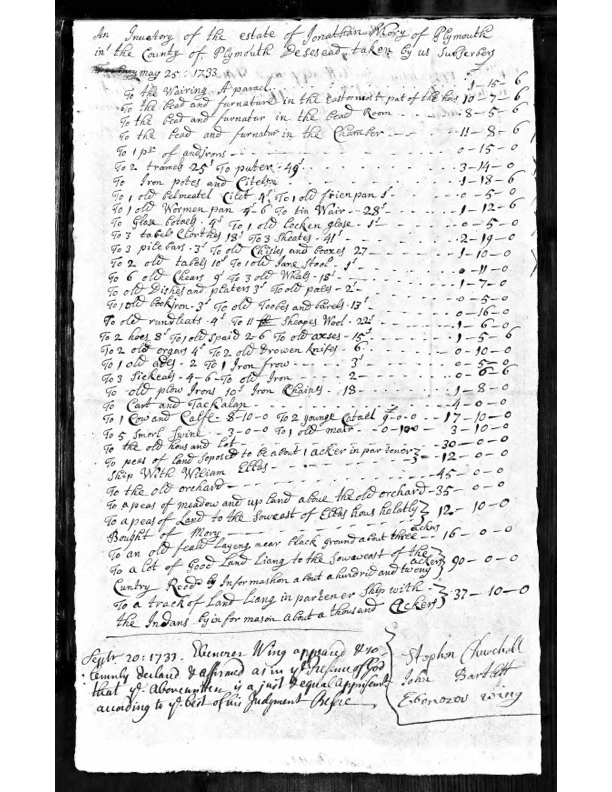 An Inventory of the estate of Jonathan Mory of Plymouth
in the County of Plymouth Desesead, taken by us Subscribers
may 25: 1733
To the Wairing Aparael - 1-15-6
To the bead and furnature in the easternest pat of the hous 10-7-6
To the bead and furnatur in the bead Room - 8-5-6
To the bead and furnatur in the Chamber - 11-8-6
To 1 pr of andirons - 0-15-0
To 2 tramels 25s To puter 49s - 3-14-0
To Iron potes and Citels - 1-18-6
To 1 old belmeatel Citel 4s To 1 old frien pan 1s - 0-5-0
To 1 old Wormen pan 4-6 To tin Wair 28s - 1-12-6
To Glase botels 4s To 1 old locken glase 1s - 0-5-0
To 3 tabel Clorthes 18s To 3 Sheates 41 - 2-19-0
To 3 pile bars 3s To old Chistes and boxes 27 - 1-10-0
To 2 old tabels 10s To 1 old Jane Stool 1s - 0-11-0
To 6 old Chears 9s To 3 old Whels 18s - 1-7-0
To old Dishes and platers 3s To old pales 2s - 0-5-0
To 1 old bookiron 3s To old Toobes and barels 13s - 0-16-0
To old rundleats 4s To 11 Sheapes Wool 22s - 1-6-0
To 2 hoes 8s To 1 old Spaid 2-6 To old axses 15s - 1-5-6
To 2 old orgers 4s To 2 old Drowen knifes 6 - 0-10-0
To 1 old ades 2 To 1 Iron frow 3s - 0-5-0
To 3 Sickeals 4-6 To old Iron 2 - 0-6-6
To old plow Irons 10s Iron Chaines 18 - 1-8-0
To Cart and Tackalan - 4-0-0
To 1 Cow and Calfe 8-10-0 To 2 younge Catael 9-0-0 - 17-10-0
To 5 Smorl Swine 3-0-0 To 1 old mair 0-10-0 3-10-0
To the old hous and lot - 30-0-0
To peas of land soposed to be about 1 acker in partener
Ship With Wiliam Ellas - 12-0-0
To the old orchard - 45-0-0
To a peas of meadow and up land above the old orchard - 35-0-0
To a peas of Land to the Sowest of Ellas hous he latly
Bought of Mory - 12-10-0
To an old feald Layeng near black ground about three ackors 16-0-0
To a lot of Good Land Liang to the Sowawest of the
Cuntry Road by Informashon about a hundrid and twenty ackers 90-0-0
To a track of Land Liang in partener Ship with
the Indans by informason about a thousand Ackers 37-10-0
Septr 20: 1733. Ebenezer Wing appeared & so-
lemnly declared & affirmed as in ye Presence of God
that ye Abovewritten is a just & equal apprisment
according to ye best of his Judgment Before
Stephen Churchell
John Bartlett
Ebenezer Wing